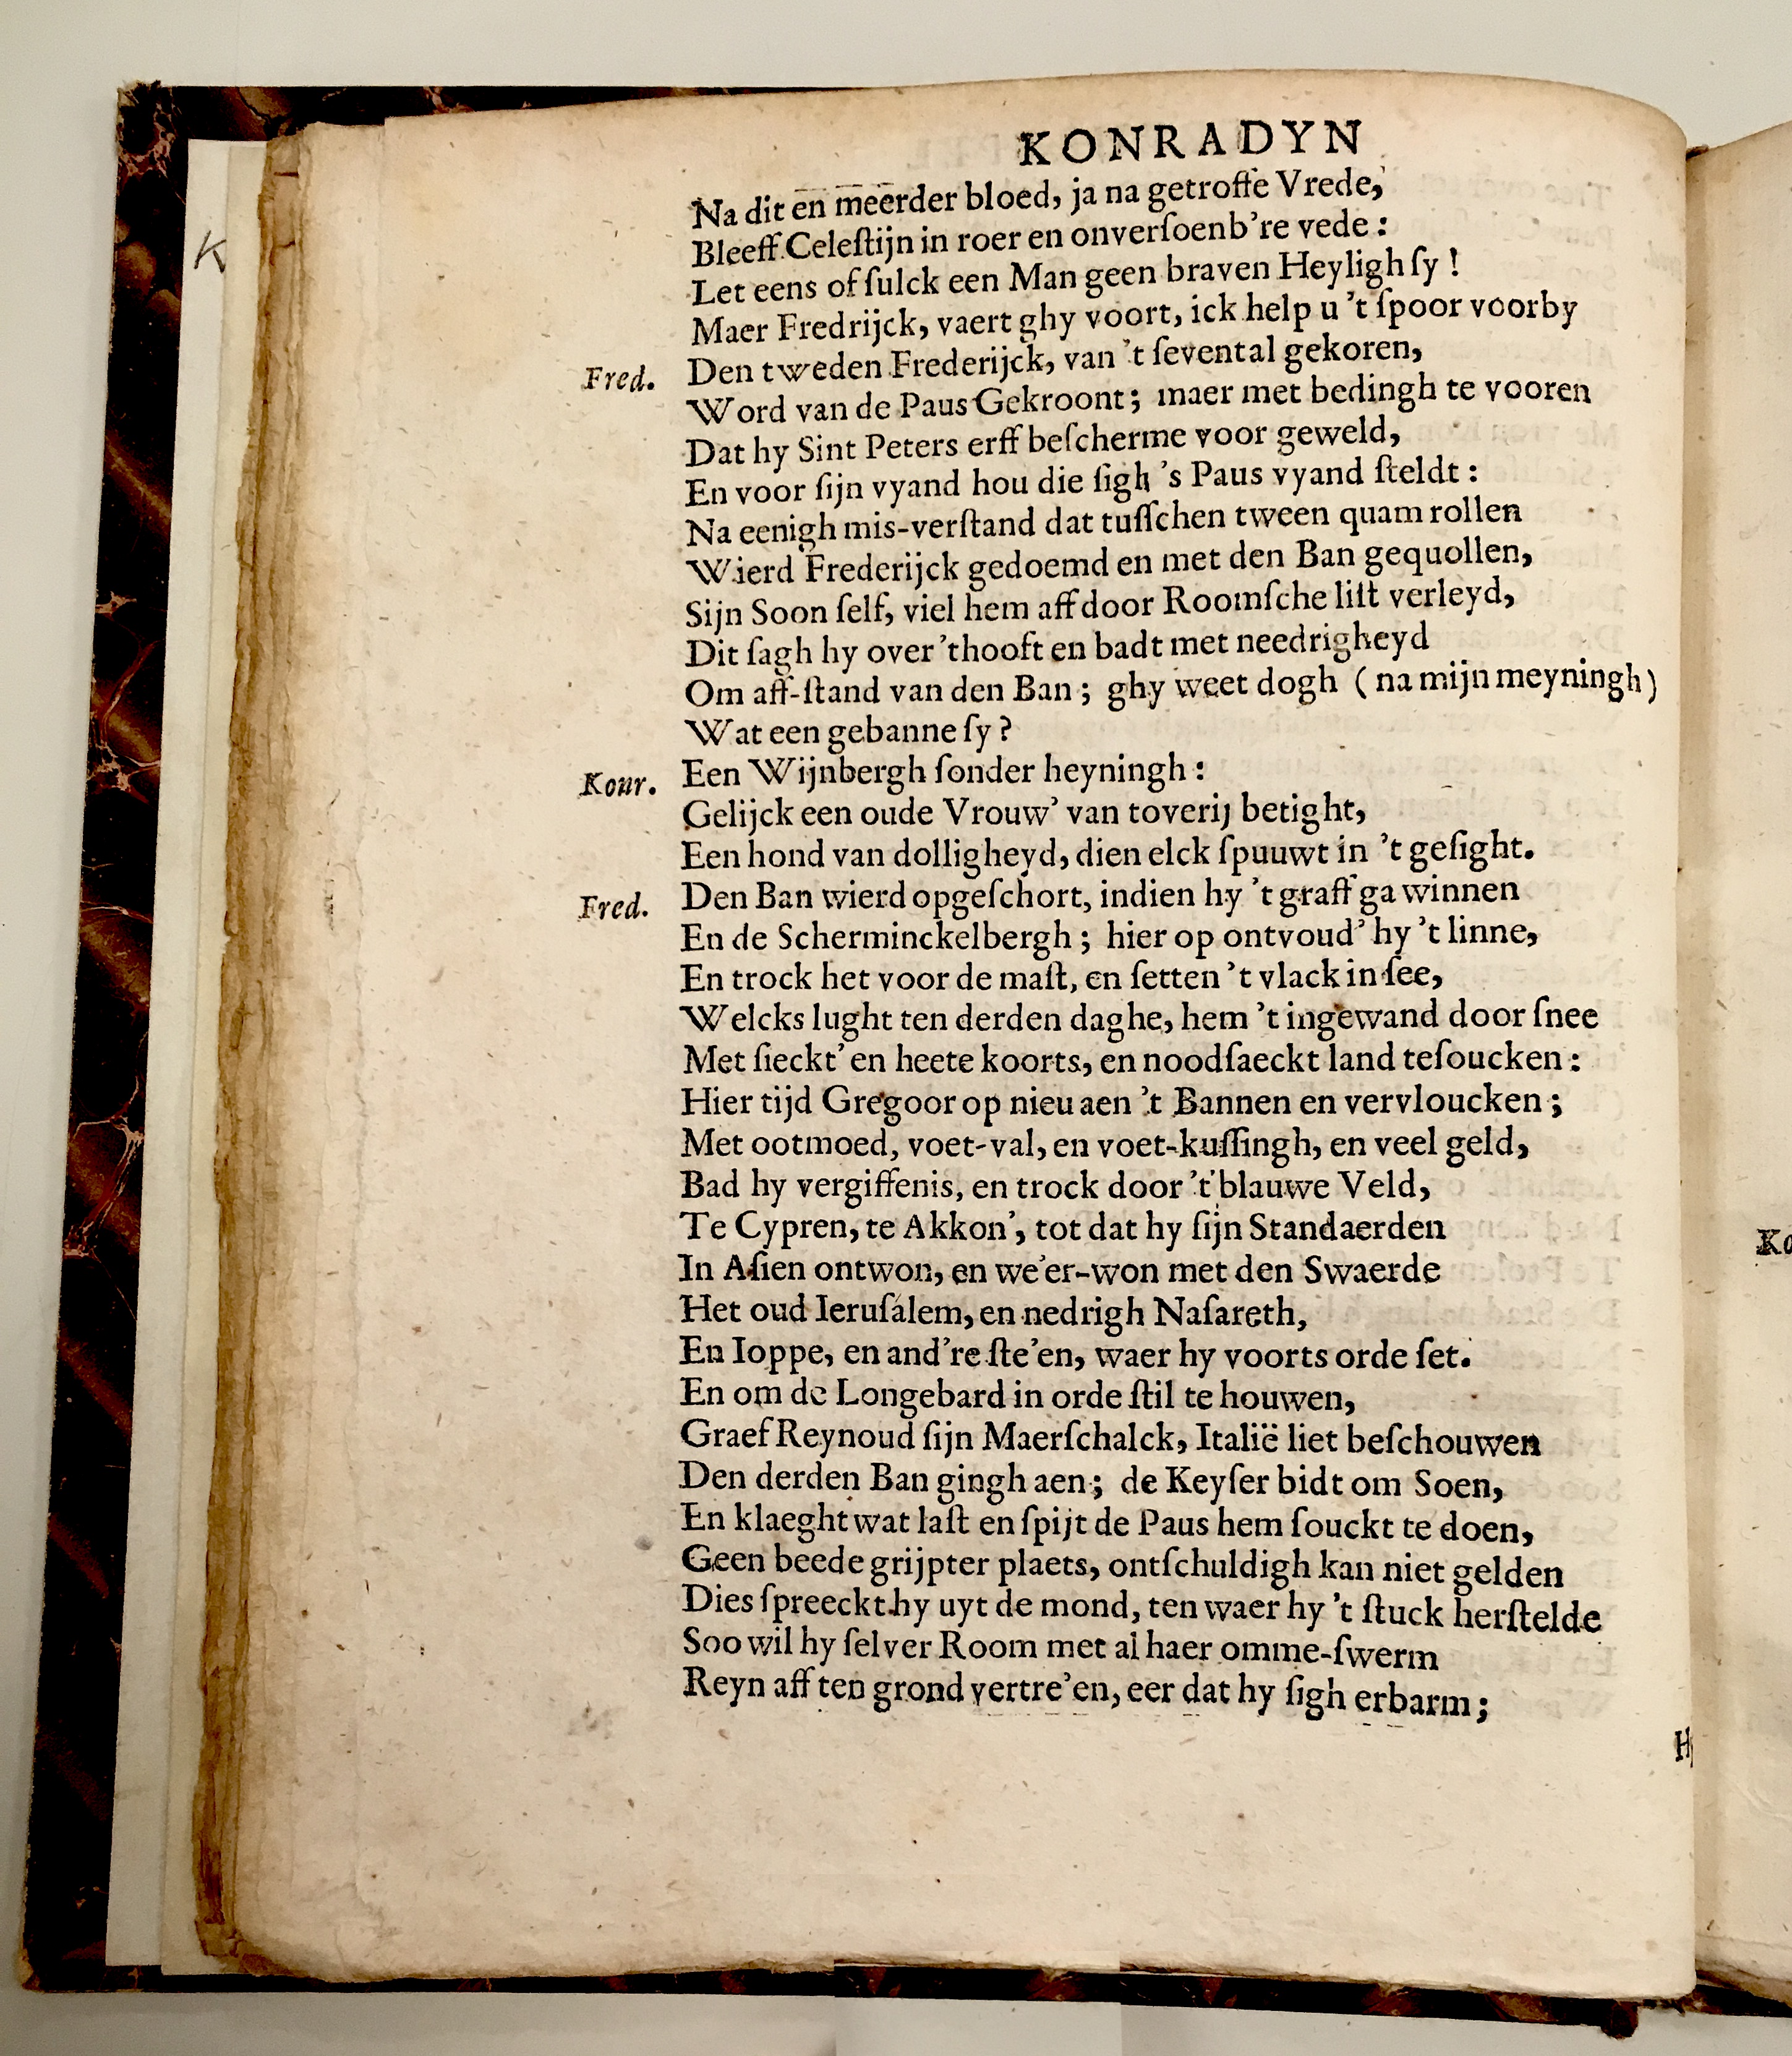 KONRADYN
Na dit en meerder bloed, ja na getroffe Vrede,
Bleeff Celeſtijn in roer en onverſoenb’re vede :
Let eens of ſulck een Man geen braven Heyligh ſy !
Maer Fredrijck, vaert ghy voort, ick help u ’t ſpoor voorby
Fred. Den tweden Frederijck, van ’t ſevental gekoren,
Word van de Paus Gekroont ; maer met bedingh te vooren
Dat hy Sint Peters erff beſcherme voor geweld,
En voor ſijn vyand hou die ſigh ’s Paus vyand ſteldt :
Na eenigh mis-verſtand dat tuſſchen tween quam rollen
Wierd Frederijck gedoemd en met den Ban gequollen,
Sijn Soon ſelf, viel hem aff door Roomſche liſt verleyd,
Dit ſagh hy over ’thooft en badt met needrigheyd
Om aff-ſtand van den Ban ; ghy weet dogh ( na mijn meyningh )
Wat een gebanne ſy ?
Konr. Een Wijnbergh ſonder heyningh :
Gelijck een oude Vrouw’ van toverij betight,
Een hond van dolligheyd, dien elck ſpuuwt in ’t geſight.
Fred. Den Ban wierd opgeſchort, indien hy ’t graff ga winnen
En de Scherminckelbergh ; hier op ontvoud’ hy ’t linne,
En trock het voor de maſt, en ſetten ’t vlack in ſee,
Welcks lught ten derden daghe, hem ’t ingewand door ſnee
Met ſieckt’ en heete koorts, en noodſaeckt land teſoucken :
Hier tijd Gregoor op nieu aen ’t Bannen en vervloucken ;
Met ootmoed, voet-val, en voet-kuſſingh, en veel geld,
Bad hy vergiffenis, en trock door ’t blauwe Veld,
Te Cypren, te Akkon’, tot dat hy ſijn Standaerden
In Aſien ontwon, en we’er-won met den Swaerde
Het oud Ieruſalem, en nedrigh Naſareth,
En Ioppe, en and’re ſte’en, waer hy voorts orde ſet.
En om de Longebard in orde ſtil te houwen,
Graef Reynoud ſijn Maerſchalck, Italië liet beſchouwen
Den derden Ban gingh aen ; de Keyſer bidt om Soen,
En klaeght wat laſt en ſpijt de Paus hem ſouckt te doen,
Geen beede grijpter plaets, ontſchuldigh kan niet gelden
Dies ſpreeckt hy uyt de mond, ten waer hy ’t ſtuck herſtelde
Soo wil hy ſelver Room met al haer omme-ſwerm
Reyn aff ten grond vertre’en, eer dat hy ſigh erbarm ;
K